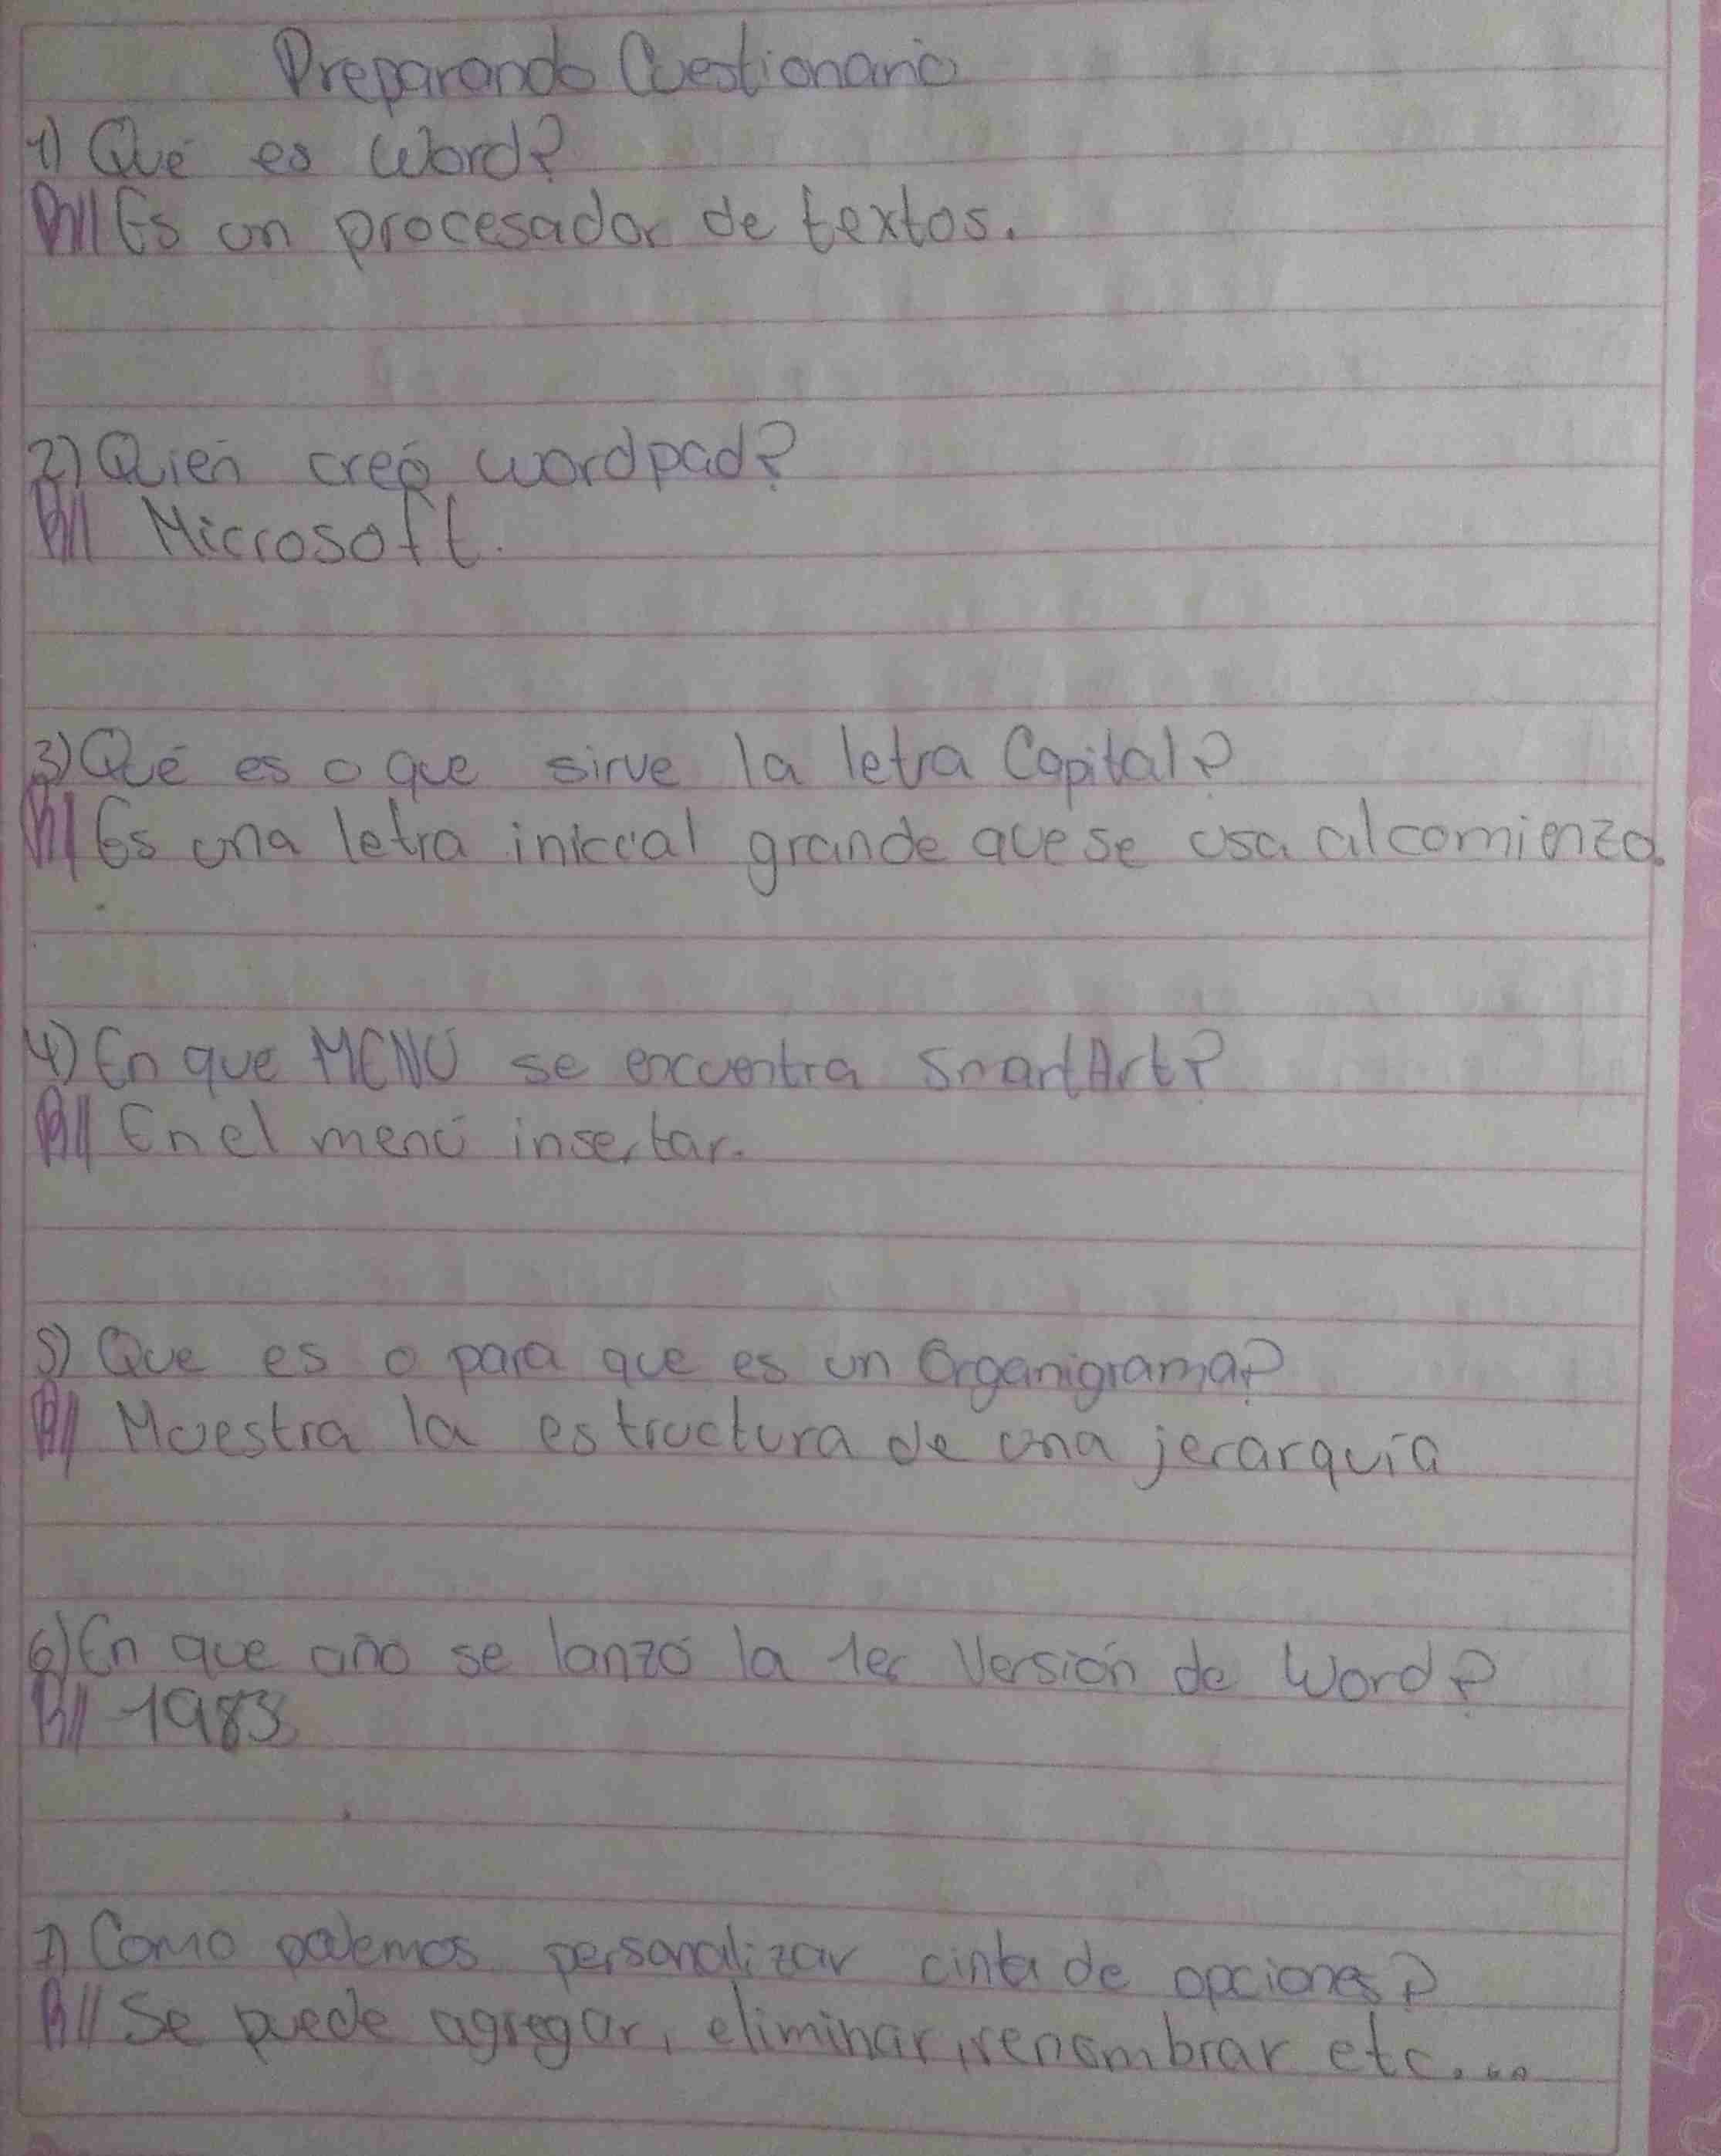 Preparando Cuestionario
1) Qué es Word?
R// Es un procesador de textos.
2) Quién creó wordpad?
R// Microsoft.
3) Qué es o que sirve la letra Capital?
R// Es una letra inicial grande que se usa al comienzo.
4) En que MENÚ se encuentra SmartArt?
R// En el menú insertar.
5) Que es o para que es un Organigrama?
R// Muestra la estructura de una jerarquía
6) En que año se lanzó la 1er Versión de Word?
R// 1983
7) Como podemos personalizar cinta de opciones?
R// Se puede agregar, eliminar, renombrar etc....